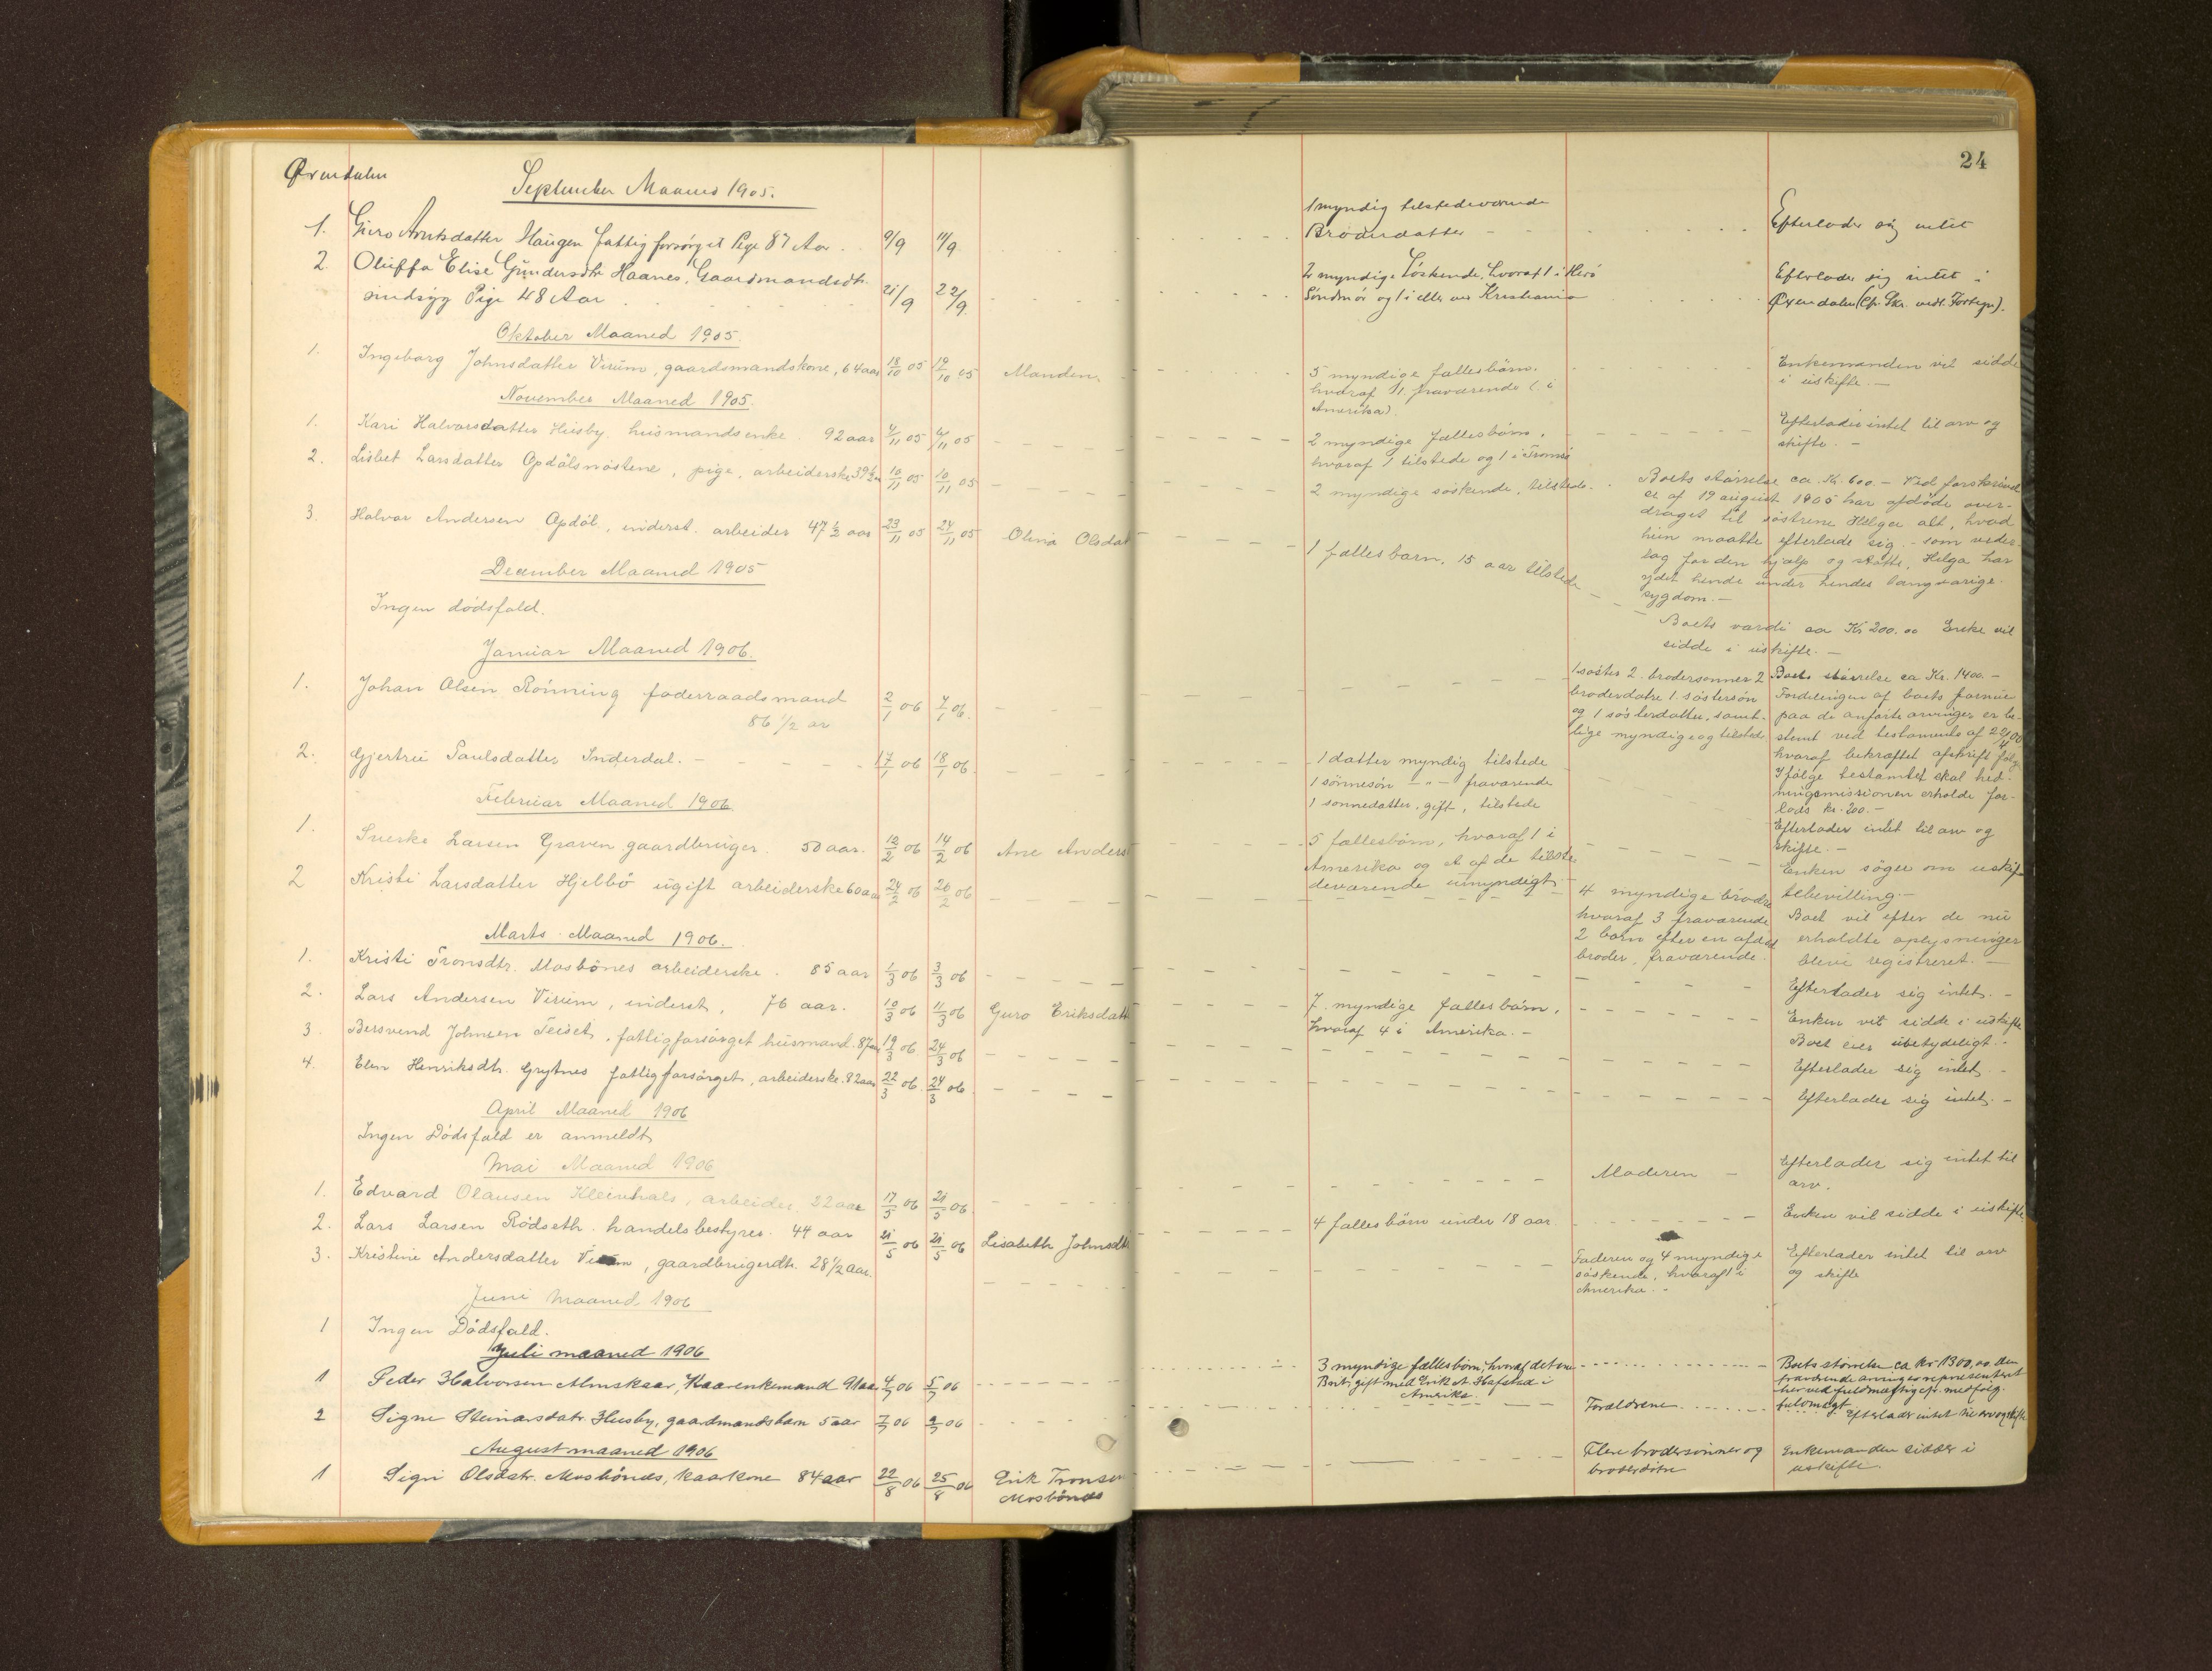 24
Øxendalen
September Maaned 1905.
1. Guro Arntsdatter Haugen fattigforsørget Pige 87 Aar 9/9 11/9
1 myndig tilstedeværende
Broderdatter
Efterlader sig intet
2. Oluffa Elise Gundersdtr Haanes, Gaardmandsdtr.
sindsyg Pige 48 Aar 21/9 22/9
2 myndige Søskende, hvoraf 1 i Herø
Søndmør og 1 i eller ved Kristiania
Efterlader sig intet i
Øxendalen (Cfr. Skr. vedl. Fortegn).
Oktober Maaned 1905.
1. Ingeborg Johnsdatter Virum, gaardsmandskone, 64 aar 18/10 05 19/10 05 Manden.
5 myndige fællesbørn.
hvoraf 1 fraværende (i
Amerika).
Enkemanden vil sidde
i uskifte. —
November Maaned 1905.
1. Kari Halvorsdatter Husby, husmandsenke. 92 aar 4/11 05 6/11 05
2 myndige fællesbørn,
hvoraf 1 tilstede og 1 i Tromsø
Efterlader intet til arv og
skifte. —
2. Lisbet Larsdatter Opdølsnøstene, pige, arbeiderske 39 1/2 aar 10/11 05 10/11 05
2 myndige søskende, tilstede.
Boets størrelse ca. Kr. 600. — Ved
af 19 august 1905 har afdøde over-
draget til søstrene Helga alt, hvad
hun maatte efterlade sig, — som veder-
lag for den hjælp og støtte, Helga har
ydet hende under hendes langvarige
sygdom. —
3. Halvor Andersen Opdøl, inderst, arbeider 47 1/2 aar 23/11 05 24/11 05 Olina Olsdat
1 fællesbarn, 15 aar tilstede
Boets værdi ca Kr 200.00 Enke vil
sidde i uskifte. —
December Maaned 1905
Ingen dødsfald.
Januar Maaned 1906.
1. Johan Olsen Rønning føderraadsmand
86 1/2 ar 2/1 06 7/1 06.
1 søster 2 brodersønner 2
broderdøtre 1 søstersøn
og 1 søsterdatter, samt-
lige myndige og tilstede
Boets størrelse ca Kr. 1400. —
Fordelingen af boets formue
paa de anførte arvinger er be-
stemt ved testamente af
hvoraf bekræftet afskrift følg
Ifølge testamtet skal hed-
ningemissionen erholde for-
lods kr. 200. —
2. Gjertru Paulsdatter Inderdal. 17/1 06 18/1 06.
1 datter myndig tilstede
1 sønnesøn — " — fraværende
1 sønnedatter, gift, tilstede
Efterlader intet til arv og
skifte. —
Februar Maaned 1906
1. Sverke Larsen Graven gaardbruger. 50 aar. 12/2 06 14/2 06 Ane Anders
5 fællesbørn, hvoraf 1 i
Amerika og et af de tilste
deværende umyndigt
Enken søger om uskif-
tebevilling. —
2 Kristi Larsdatter Hjelbø ugift arbeiderske 60 aar 24/2 06 26/2 06
4 myndige brødre
hvoraf 3 fraværende
2 børn efter en afdød
broder, fraværende.
Boet vil efter de nu
erholdte oplysninger
blive registreret. —
Marts Maaned 1906.
1. Kristi Tronsdtr. Mosbønes arbeiderske. 85 aar 1/3 06 3/3 06
Efterlader sig intet. —
2. Lars Andersen Virum, inderst, 76 aar. 10/3 06 11/3 06 Guro Eriksdatt
7 myndige fællesbørn,
hvoraf 4 i Amerika. —
Enken vil sidde i uskifte
Boet eier ubetydeligt. —
3. Bersvend Johnsen Teiset, fattigforsørget husmand. 87 aar 19/3 06 24/3 06
Efterlader sig intet. —
4. Elen Henriksdtr. Grytnes fattigforsørget, arbeiderske. 82 aar 22/3 06. 24/3 06
Efterlader sig intet. —
April Maaned 1906
Ingen Dødsfald er anmeldt
Mai Maaned 1906
1. Edvard Olausen Kleivhals, arbeider, 22 aar 17/5 06 21/5 06.
Moderen
Efterlader sig intet til
arv.
2. Lars Larsen Rødseth. handelsbestyrer. 44 aar 21/5 06 21/5 06 Lisabeth Johnsdtr
4 fællesbørn under 18 aar.
Enken vil sidde i uskifte
3. Kristine Andersdatter Virum, gaardbrugerdtr. 28 1/2 aar.
Faderen og 4 myndige
søskende, hvoraf 1 i
Amerika. —
Efterlader intet til arv
og skifte
Juni Maaned 1906
1 Ingen Dødsfald.
Juli maaned 1906
1 Peder Halvorsen Almskaar, Kaarenkemand 91 aar 4/7 06 5/7 06
3 myndige fællesbørn, hvoraf det ene
Brit, gift med Erik A. Hafstad i
Amerika.
Boets størrelse ca kr 1300,00. Den
fraværende arving er repræsenteret
her ved fuldmægtig cfr. medfølg.
fuldmagt.
2 Signe Steinarsdatr. Husby, gaardmandsbarn 5 aar 7/7 06 9/7 06
Forældrene
Efterlader intet til arv og skifte
August maaned 1906
1 Sigri Olsdatr. Mosbønes, kaarkone 84 aar 22/8 06 25/8 06 Erik Tronsen
Mosbønes
Flere brodersønner og
broderdøtre
Enkemanden sidder i
uskifte.